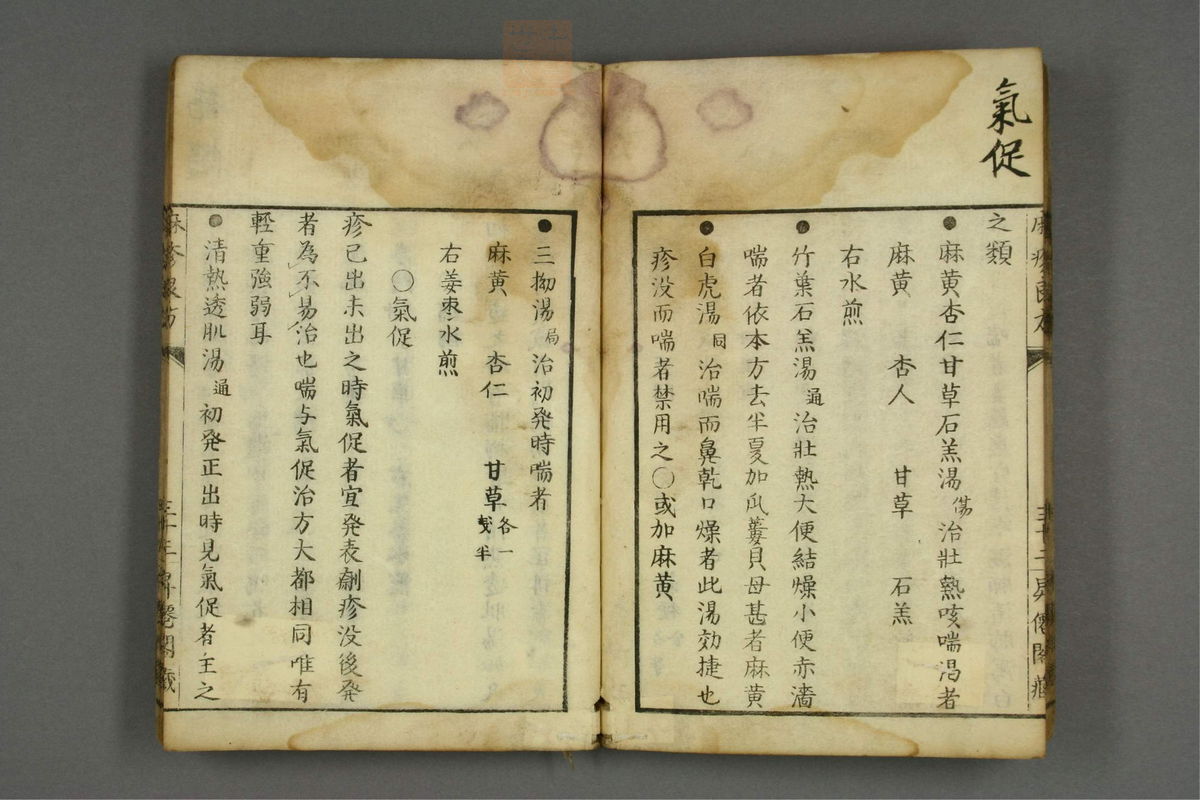 氣促
之類
●麻黄杏仁甘草石羔湯傷治壯熱咳喘渴者
麻黄 杏人 甘草 石羔
右水煎
●竹葉石羔湯通治壯熱大便結燥小便赤濇
喘者依本方去半夏加瓜蔞貝母甚者麻黄
●白虎湯同治喘而鼻乾口燥者此湯効捷也
疹没而喘者禁用之〇或加麻黄
●三拗湯局治初発時喘者
麻黄 杏仁 甘草各一戔半
右姜枣水煎
〇氣促
疹已出未出之時氣促者宜発表劑疹没後発
者為不易治也喘与氣促治方大都相同唯有
軽重強弱耳
●清熱透肌湯通初発正出時見氣促者主之